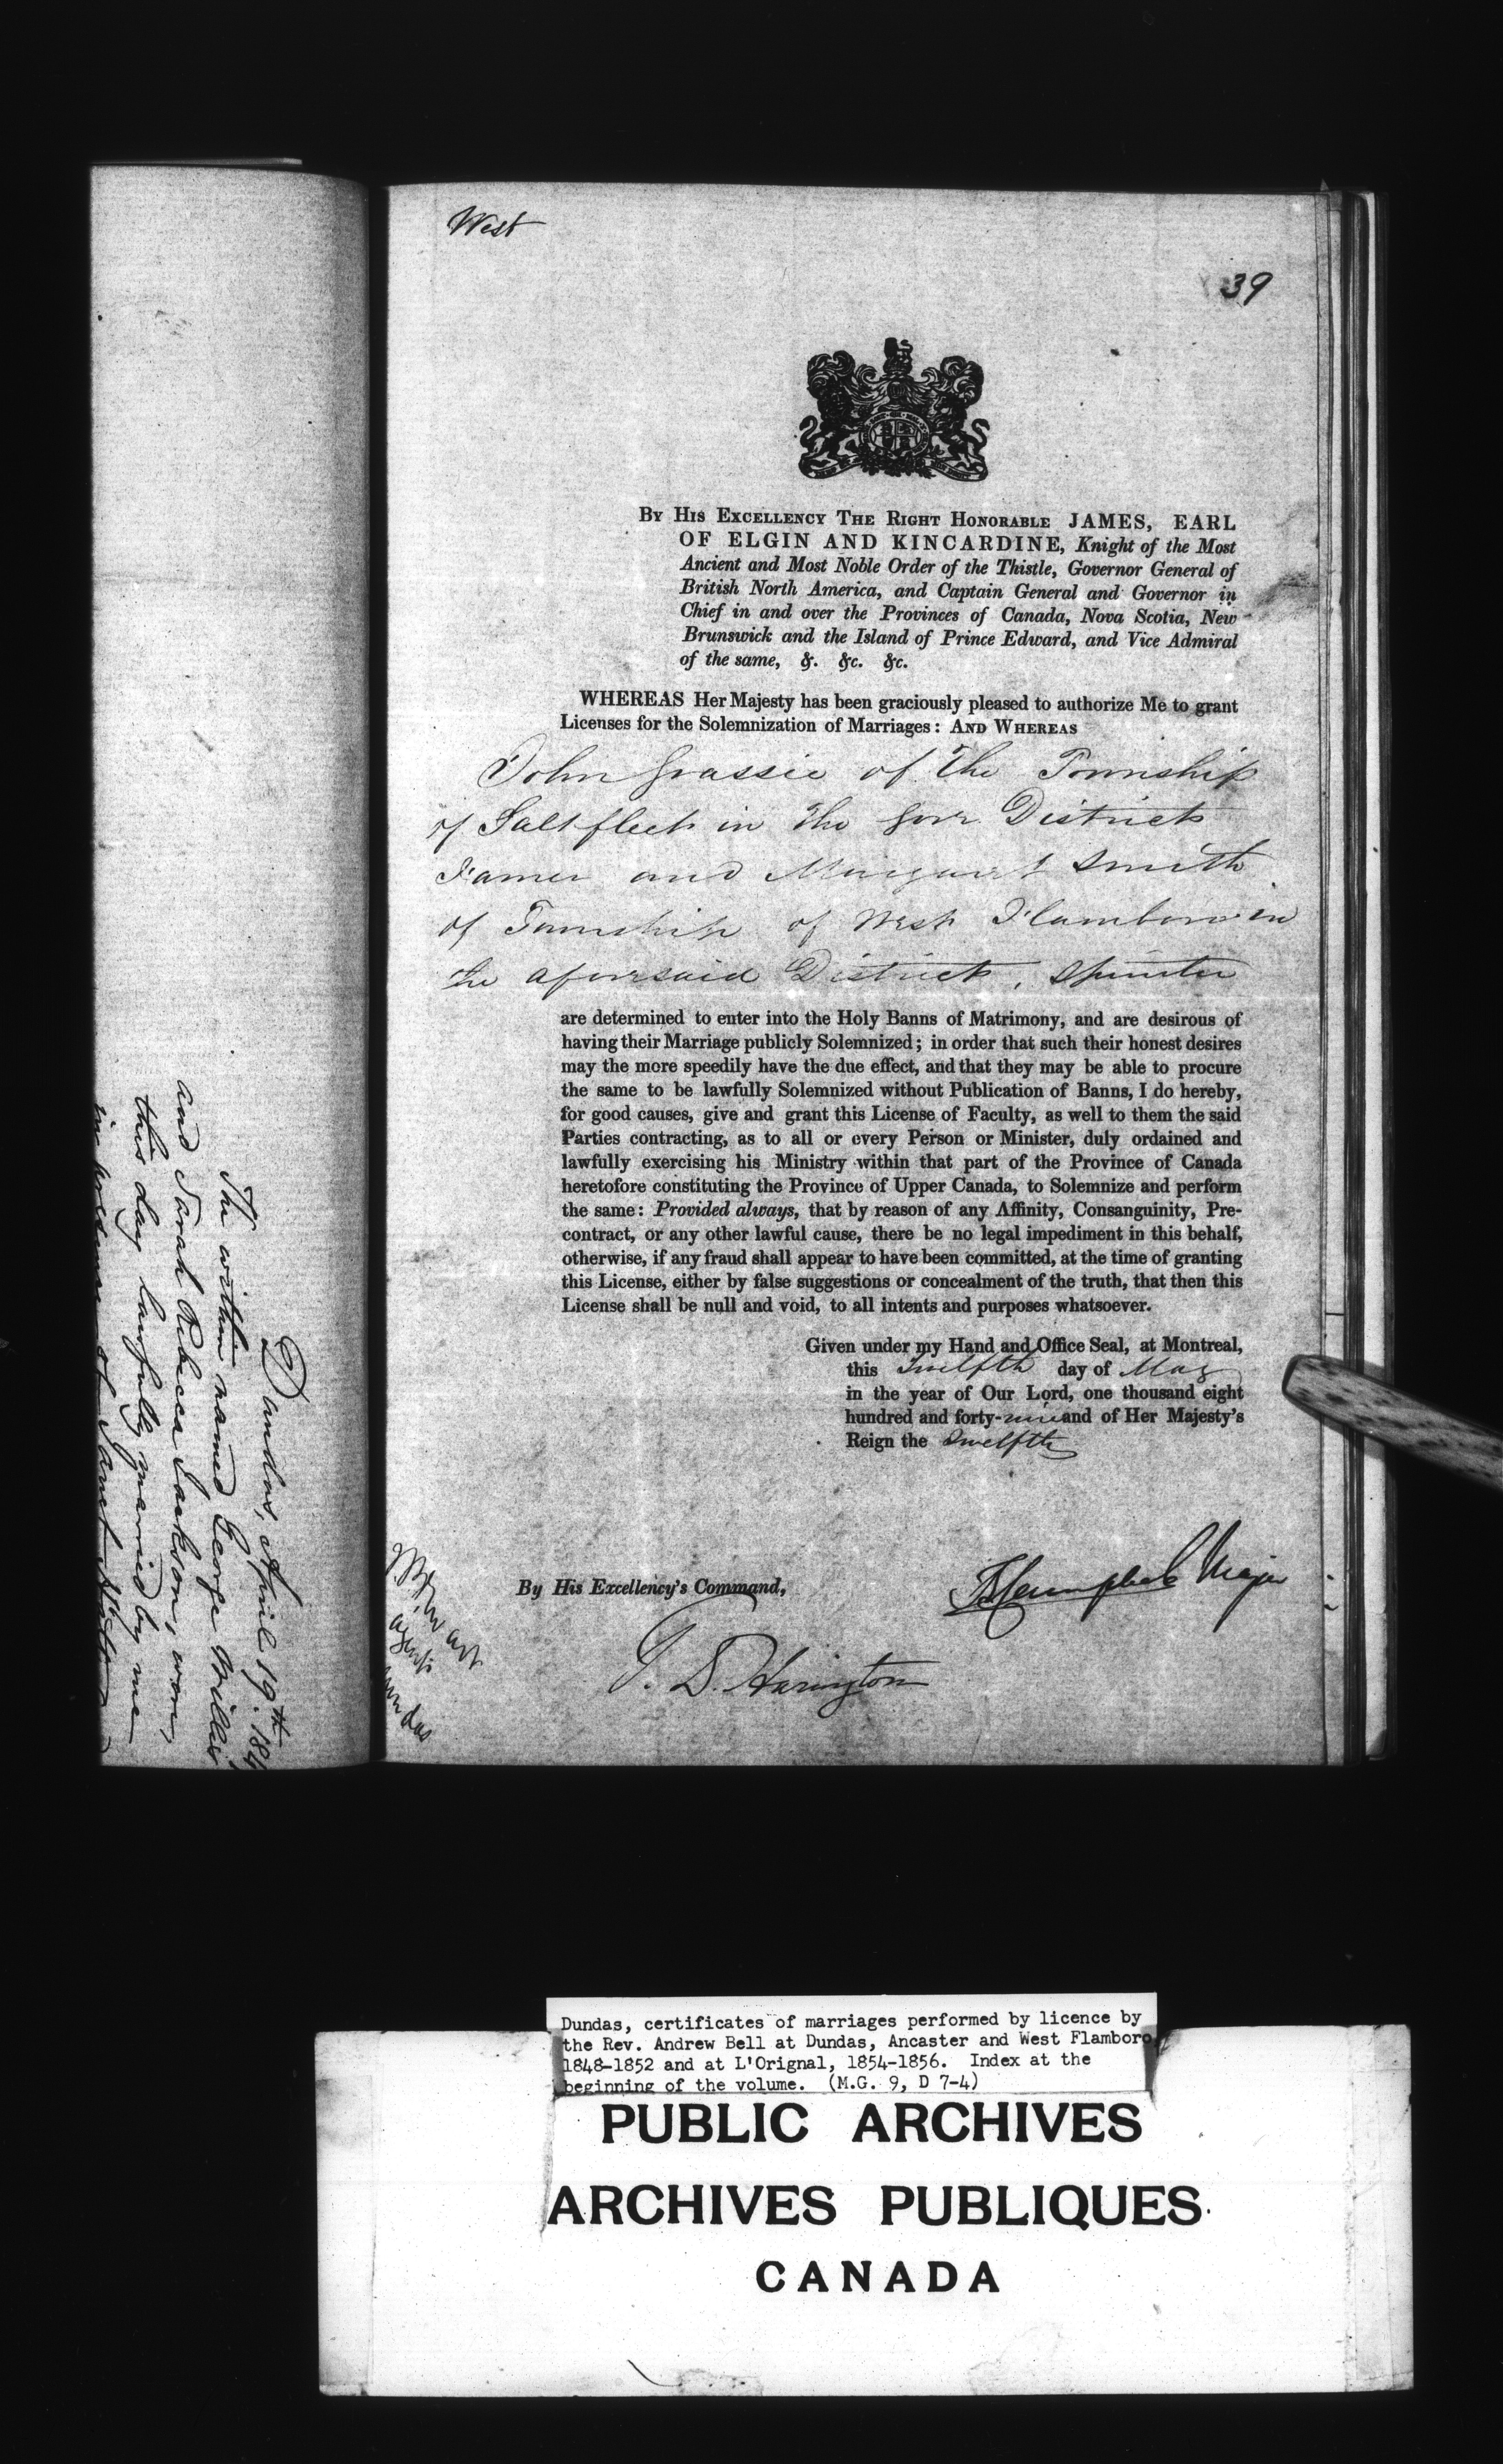 West
39
BY HIS EXCELLENCY THE RIGHT HONORABLE JAMES, EARL
OF ELGIN AND KINCARDINE, Knight of the Most
Ancient and Most Noble Order of the Thistle, Governor General of
British North America, and Captain General and Governor in
Chief in and over the Provinces of Canada, Nova Scotia, New
Brunswick and the Island of Prince Edward, and Vice Admiral
of the same, &. &c. &c.
WHEREAS Her Majesty has been graciously pleased to authorize Me to grant
Licenses for the Solemnization of Marriages: AND WHEREAS
John Grassie of the Township
of Saltfleet in the Gore District
Farmer and Margaret Smith
of Township of West Flamboro in
the aforesaid District, Spinster
are determined to enter into the Holy Banns of Matrimony, and are desirous of
having their Marriage publicly Solemnized; in order that such their honest desires
may the more speedily have the due effect, and that they may be able to procure
the same to be lawfully Solemnized without Publication of Banns, I do hereby,
for good causes, give and grant this License of Faculty, as well to them the said
Parties contracting, as to all or every Person or Minister, duly ordained and
lawfully exercising his Ministry within that part of the Province of Canada
heretofore constituting the Province of Upper Canada, to Solemnize and perform
the same: Provided always, that by reason of any Affinity, Consanguinity, Pre-
contract, or any other lawful cause, there be no legal impediment in this behalf,
otherwise, if any fraud shall appear to have been committed, at the time of granting
this License, either by false suggestions or concealment of the truth, that then this
License shall be null and void, to all intents and purposes whatsoever.
Given under my Hand and Office Seal, at Montreal,
this Twelfth day of May
in the year of Our Lord, one thousand eight
hundred and forty-nine and of Her Majesty's
Reign the Twelfth
By His Excellency's Command,
Campbell Major
T. D. Harington
agent
Dundas, April 19th. 184
The within named George Miller
and Sarah Rebecca Jackson, were,
this day lawfully married by me
in presence of Janet
Dundas, certificates of marriages performed by licence by
the Rev. Andrew Bell at Dundas, Ancaster and West Flamboro
1848-1852 and at L'Orignal, 1854-1856. Index at the
beginning of the volume. (M.G. 9, D 7-4)
PUBLIC ARCHIVES
ARCHIVES PUBLIQUES
CANADA